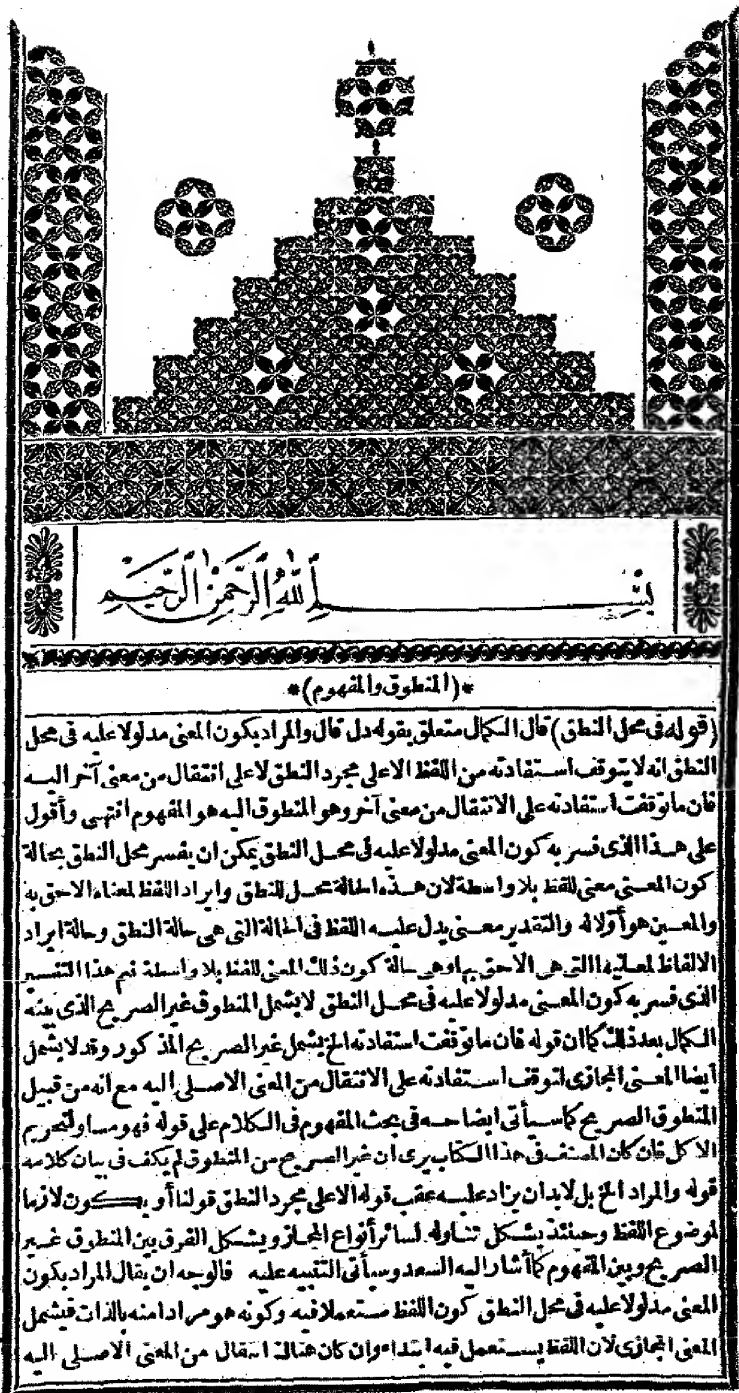 بسم الله الرحمن الرحيم
*(المنطوق والمفهوم)*
(قوله فى محل النطق) قال الكمال متعلق بقوله دل قال والمراد بكون المعنى مدلولا عليه فى محل
النطق انه لا يتوقف استفادته من اللفظ الا على مجرد النطق لا على انتقال من معنى آخر اليه
فان ما توقفت استفادته على الانتقال من معنى آخر وهو المنطوق اليه هو المفهوم انتهى وأقول
على هذا الذى فسر به كون المعنى مدلولا عليه فى محل النطق يمكن ان يفسر محل النطق بحالة
كون المعنى معنى للفظ بلا واسطة لان هذه الحالة محل للنطق وايراد اللفظ لمعناه الاحق به
والمعين هو أولا له والتقدير معنى يدل عليه اللفظ فى الحالة التى هى حالة النطق وحالة ايراد
الالفاظ لمعانيها التى هى الاحق بها وهى حالة كون ذلك المعنى للفظ بلا واسطة نعم هذا التفسير
الذى فسر به كون المعنى مدلولا عليه فى محل النطق لا يشمل المنطوق غير الصريح الذى بينه
الكمال بعد ذلك كما ان قوله فان ما توقفت استفادته الخ يشمل غير الصريح المذكور وقد لا يشمل
أيضا المعنى المجازى لتوقف استفادته على الانتقال من المعنى الاصلى اليه مع انه من قبيل
المنطوق الصريح كما سيأتى ايضاحه فى بحث المفهوم فى الكلام على قوله فهو مساو لتحريم
الاكل فان كان المصنف فى هذا الكتاب يرى ان غير الصريح من المنطوق لم يكف فى بيان كلامه
قوله والمراد الخ بل لابد ان يزاد عليه عقب قوله الا على مجرد النطق قولنا أو يكون لازما
لموضوع اللفظ وحينئذ يشكل تناوله لسائر أنواع المجاز ويشكل الفرق بين المنطوق غير
الصريح وبين المفهوم كما أشار اليه السعد وسيأتى التنبيه عليه فالوجه ان يقال المراد بكون
المعنى مدلولا عليه فى محل النطق كون اللفظ مستعملا فيه وكونه هو مرادا منه بالذات فيشمل
المعنى المجازى لان اللفظ يستعمل فيه ابتداء وان كان هناك انتقال من المعنى الاصلى اليه